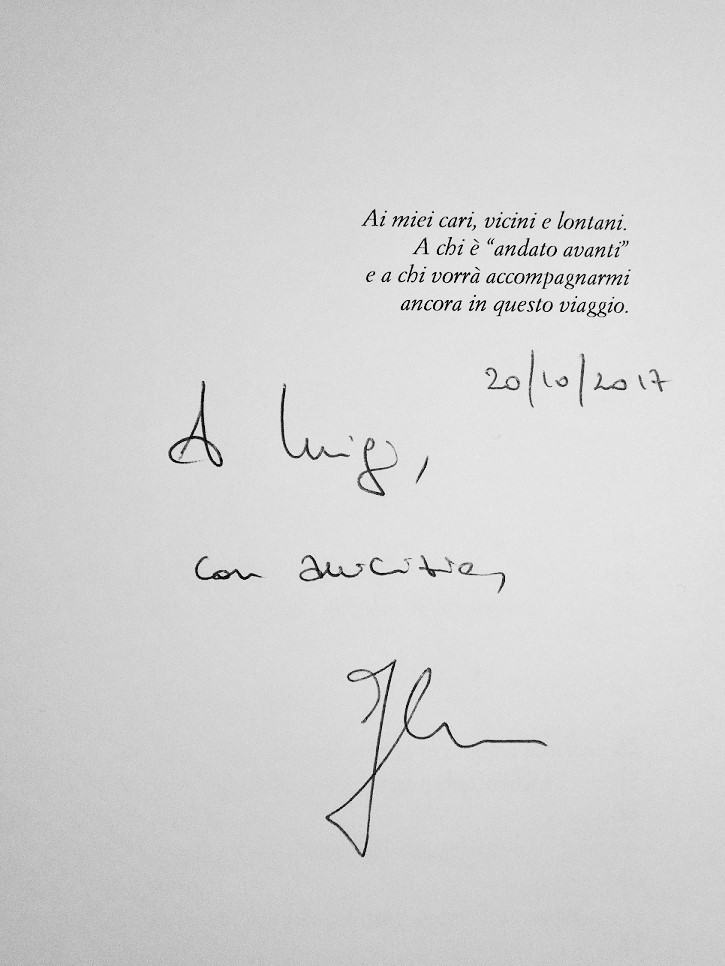 Ai miei cari, vicini e lontani.
A chi è “andato avanti”
e a chi vorrà accompagnarmi
ancora in questo viaggio.
20/10/2017
A Luigi,
con amicizia,